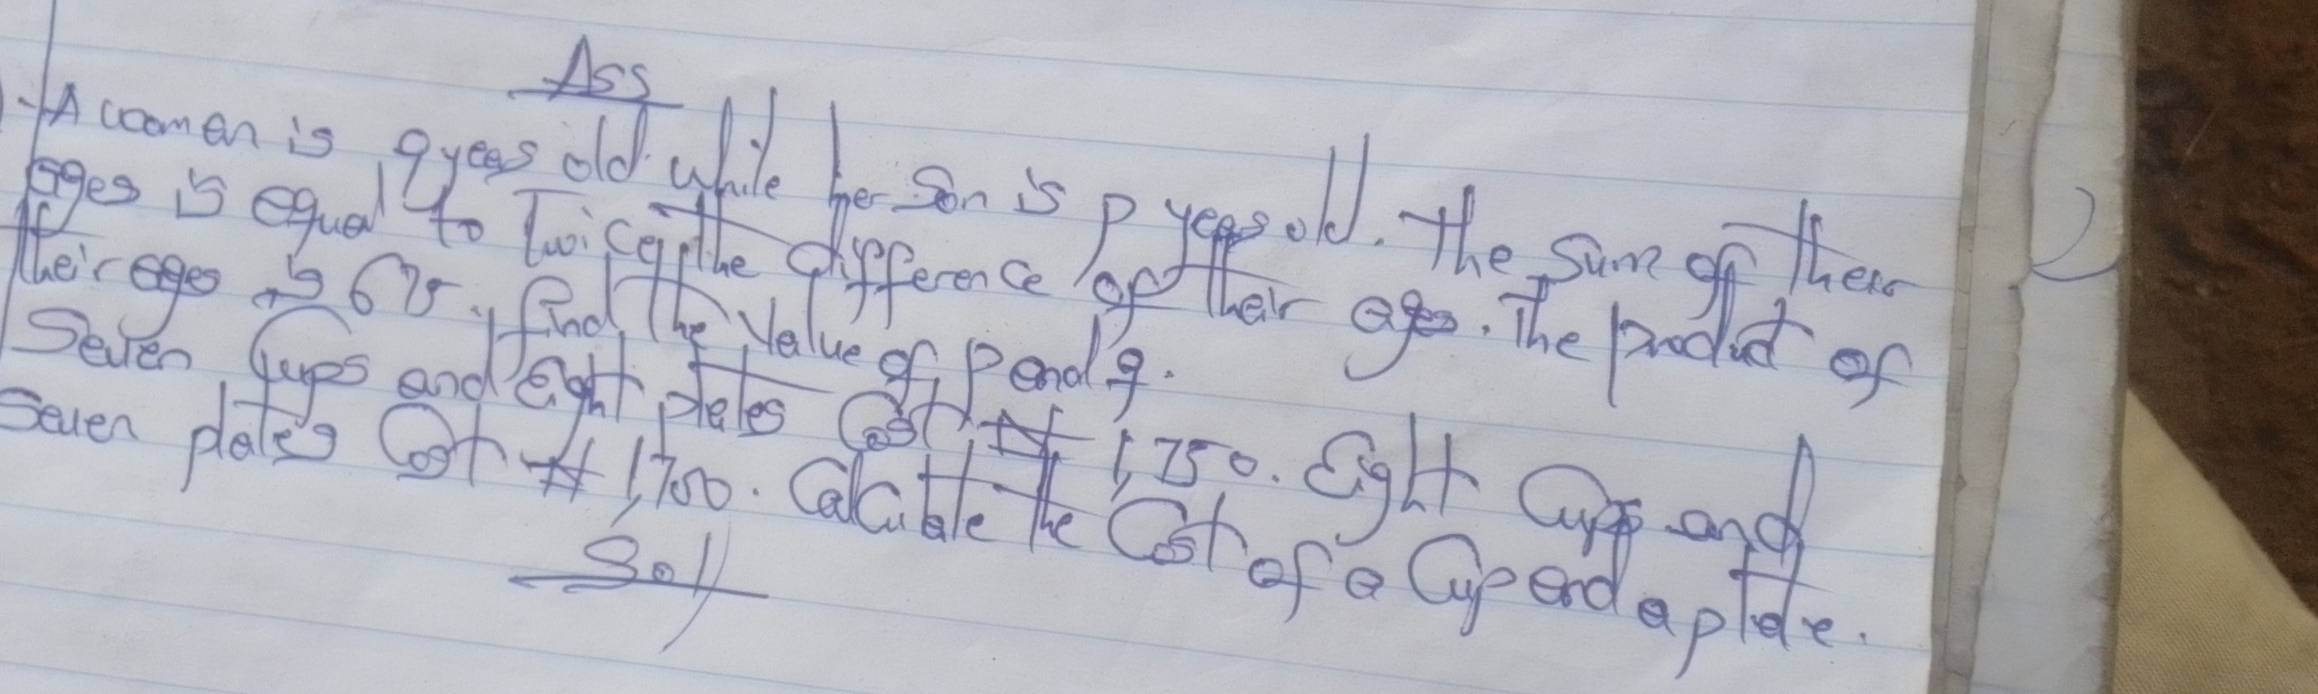 Ass
1. A woman is q years old while her son is p years old. The sum of their
ages is equal to Twice the difference of their ages. The product of
their ages is 675. find the value of p and q.
Seven Cups and Eight plates Cost ₦ 1,750. Eight Cups and
Seven plates Cost ₦ 1,700. Calculate the Cost of a Cup and a plate.
Sol
2